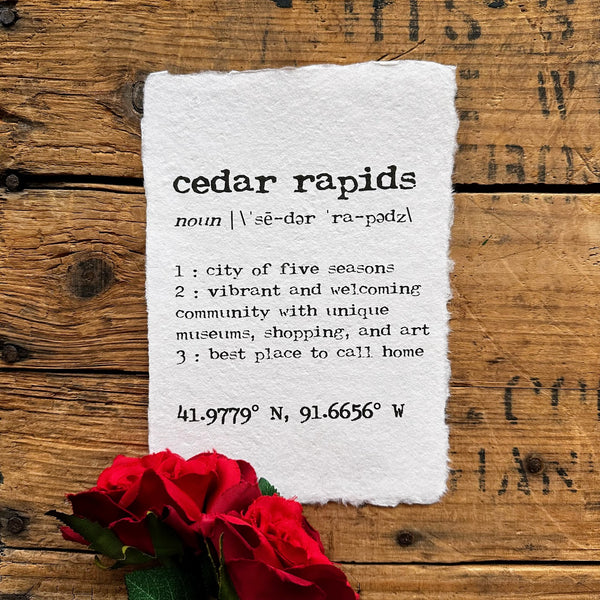 cedar rapids
noun |\ˈsē-dər ˈra-pədz\
1 : city of five seasons
2 : vibrant and welcoming
community with unique
museums, shopping, and art
3 : best place to call home
41.9779° N, 91.6656° W